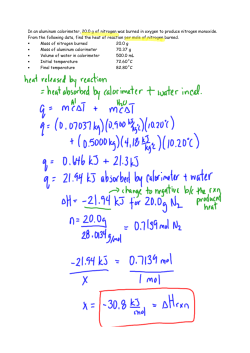 In an aluminum calorimeter, 20.0 g of nitrogen was burned in oxygen to produce nitrogen monoxide.
From the following data, find the heat of reaction per mole of nitrogen burned.
• Mass of nitrogen burned 20.0 g
• Mass of aluminum calorimeter 70.37 g
• Volume of water in calorimeter 500.0 mL
• Initial temperature 72.60°C
• Final temperature 82.80°C
heat released by reaction
= heat absorbed by calorimeter + water incal.
Al H₂O
q = mcΔT + mcΔT
q = (0.07037 kg)(0.900 kJ/kg°C)(10.20°C)
+ (0.5000 kg)(4.18 kJ/kg°C)(10.20°C)
q = 0.646 kJ + 21.3 kJ
q = 21.94 kJ absorbed by calorimeter + water
→ change to negative b/c the rxn produced heat
ΔH = -21.94 kJ for 20.0g N₂
n = 20.0g / 28.0134 g/mol = 0.7139 mol N₂
-21.94 kJ / x = 0.7139 mol / 1 mol
x = -30.8 kJ/mol = ΔHrxn